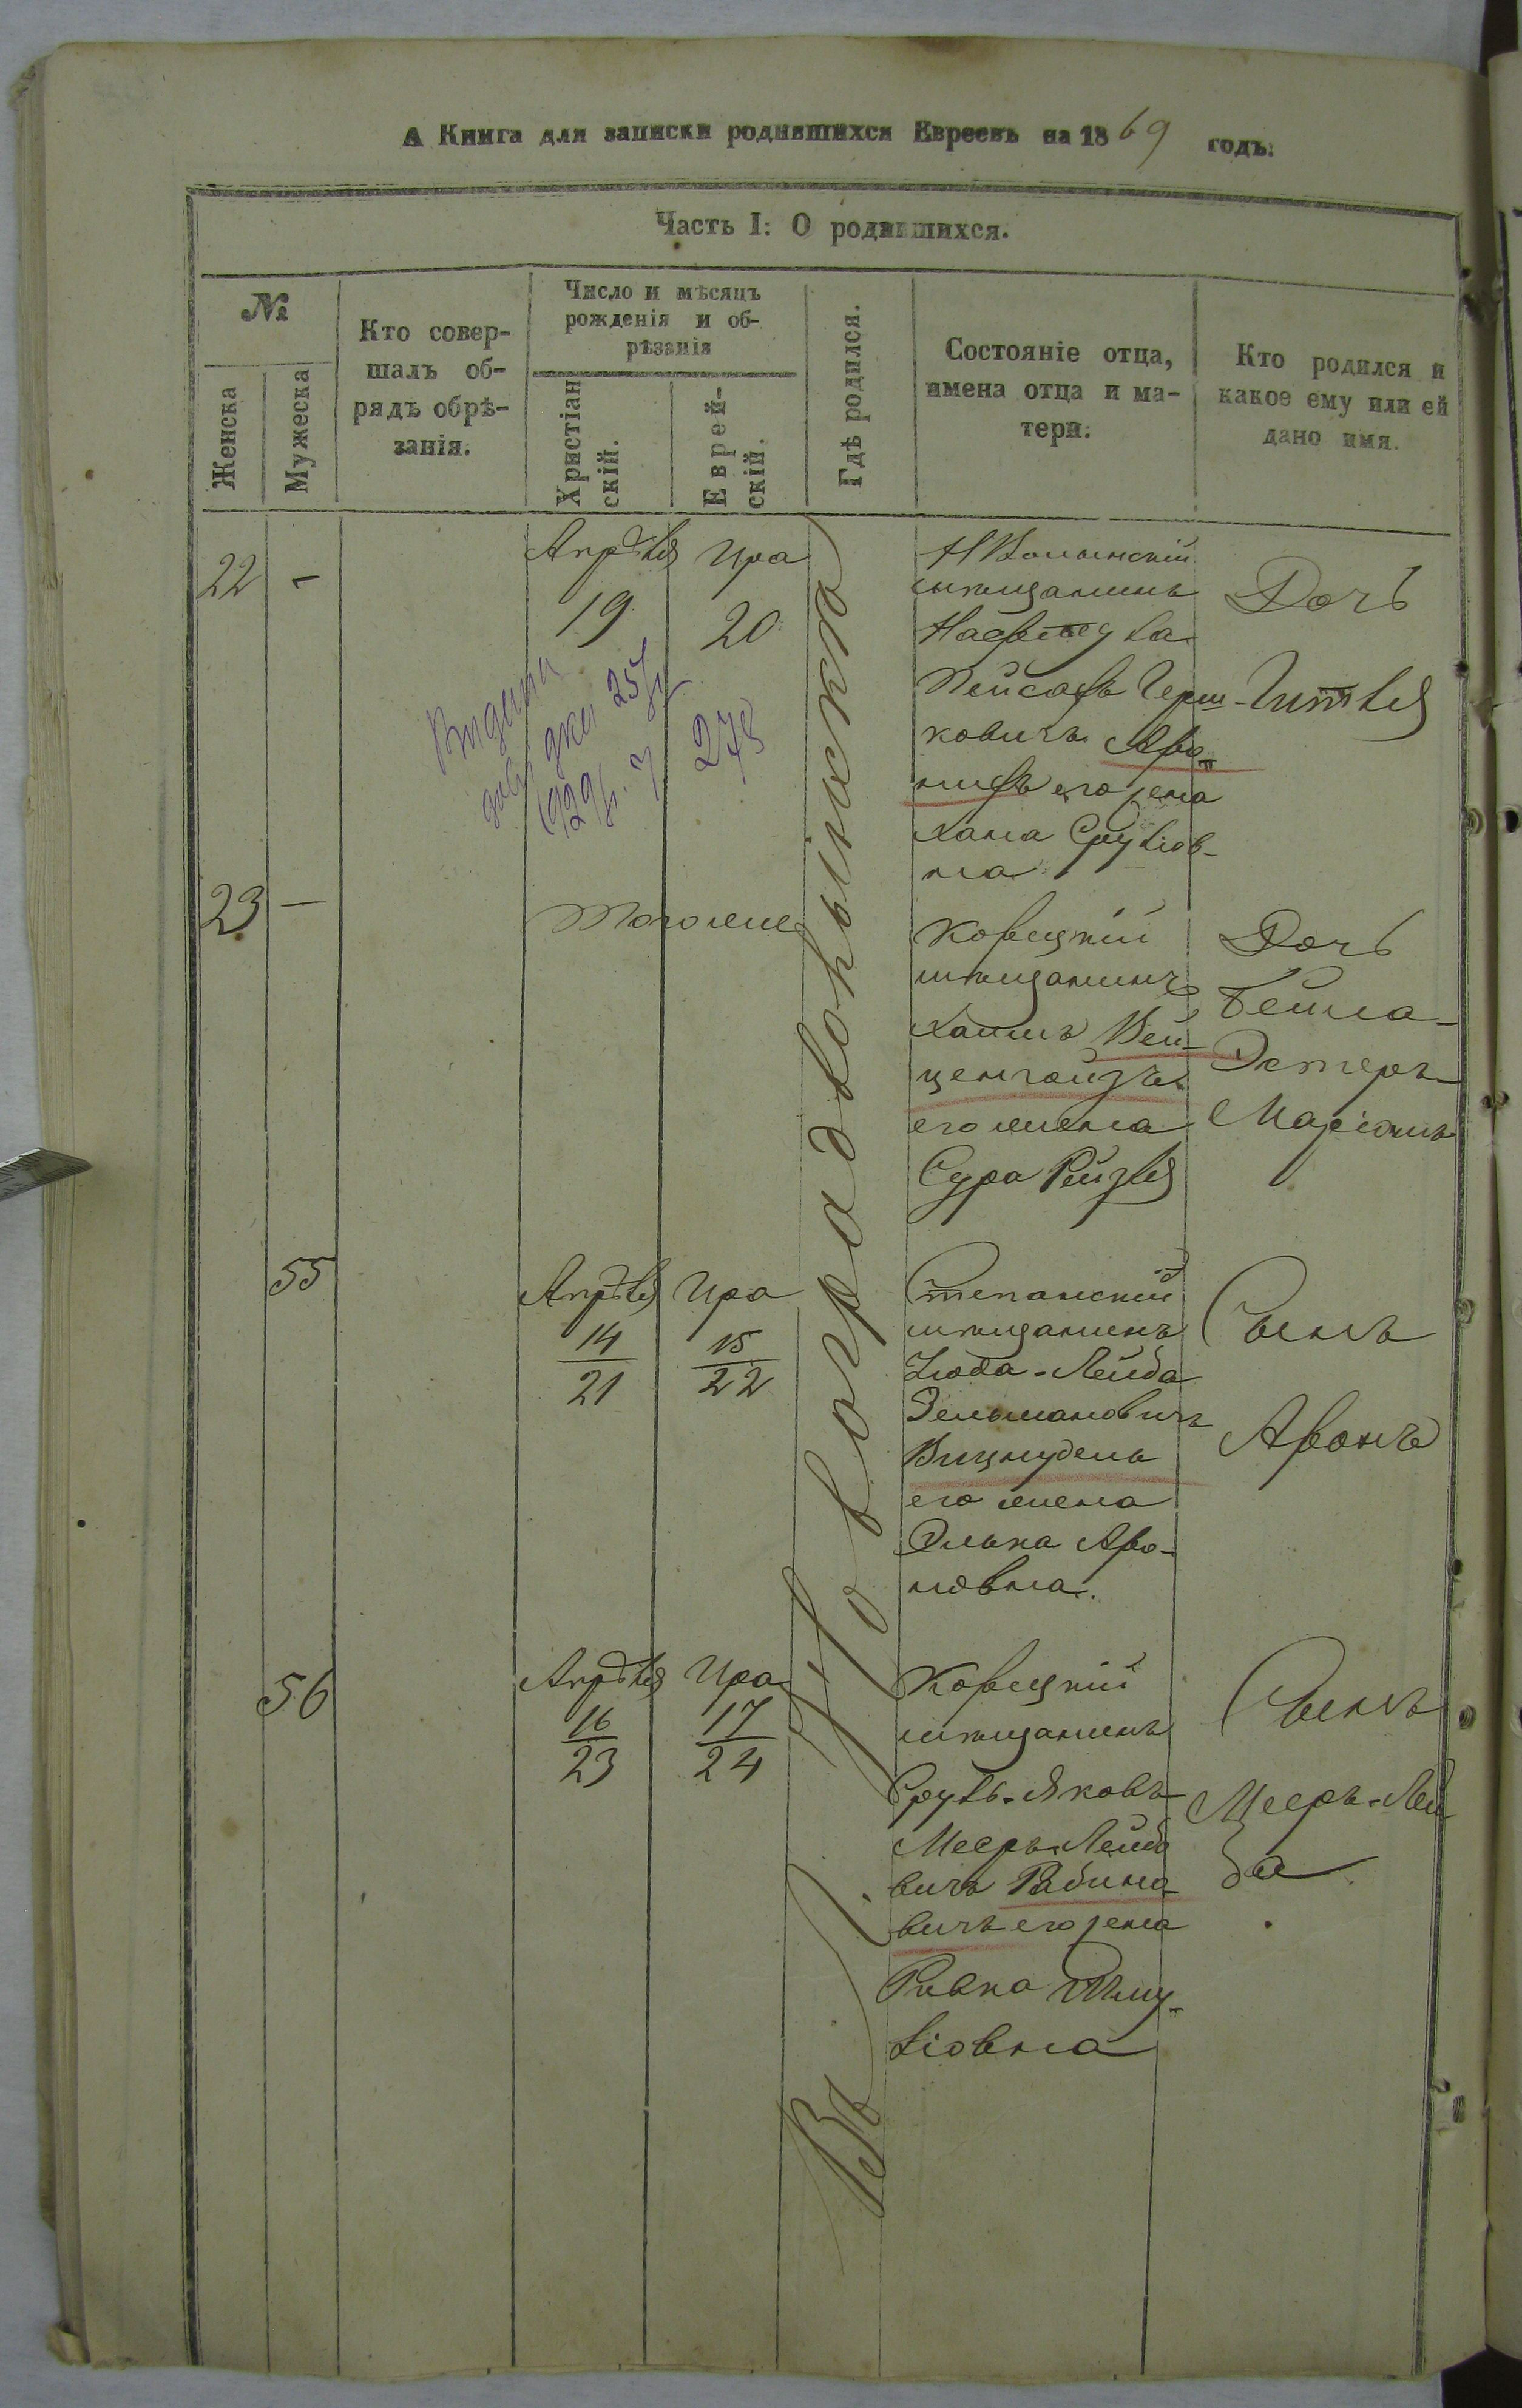 А Книга для записки родившихся Евреевъ на 1869 годъ.
Часть I: О родившихся.
№
Женска
Мужеска
Кто совер-
шалъ об-
рядъ обрѣ-
занія.
Число и мѣсяцъ
рожденія и об-
рѣзанія
Христіан
скій.
Еврей-
скій.
Гдѣ родился.
Состояніе отца,
имена отца и ма-
тери.
Кто родился и
какое ему или ей
дано имя.
Въ Новоградволынскѣ
22
Апрѣля
19
Ира
20
Видана
дня 25/
1929 г. 278
НВолынскій
мѣщанинъ
Пейсахъ Герш-
ковичъ Аро-
нихъ его жена
Хана Срулiов-
на
Дочь
Гитля
23 —
тогоже
Корецкій
мѣщанинъ
Хаимъ Вей-
ценгойзъ
его жена
Сура Рейзля
Дочь
Бейла-
Эстеръ-
Маріомъ
55
Апрѣля
14
21
Ира
15
22
Степанскій
мѣщанинъ
Іюда-Лейба
Зельмановичъ
его жена
Элька Аро-
новна.
Сынъ
Аронъ
56
Апрѣля
16
23
Ира
17
24
Корецкій
мѣщанинъ
Сруль-Яковъ
Мееръ-Лейбо
вичъ Рабино-
вичъ его жена
Ривка Шму-
лiовна
Сынъ
Мееръ-Лей
ба